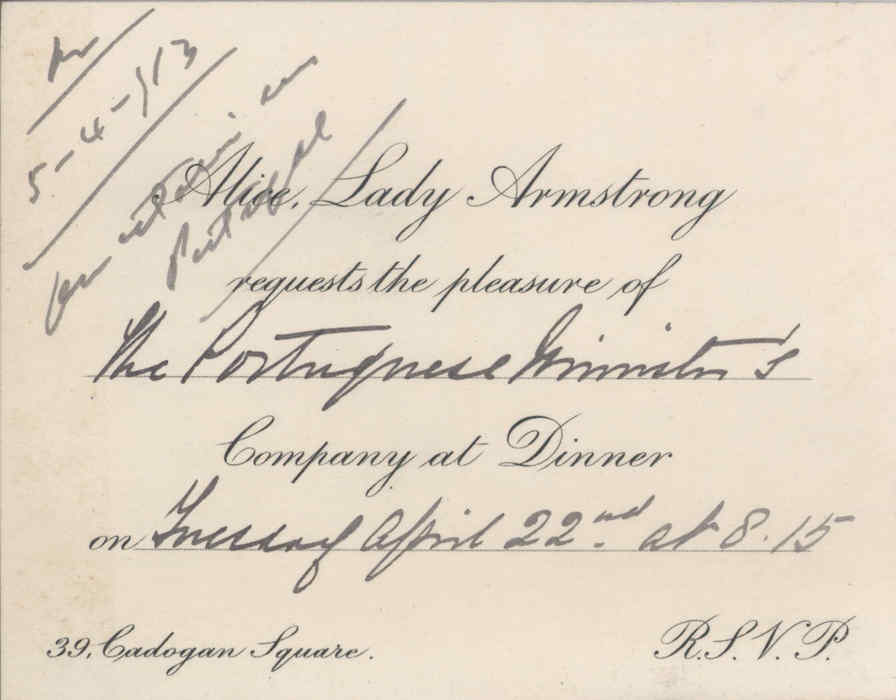 5-4-913
Alice, Lady Armstrong
requests the pleasure of
The Portuguese Minister's
Company at Dinner
on Tuesday April 22nd. at 8.15
39, Cadogan Square.
R.S.V.P.